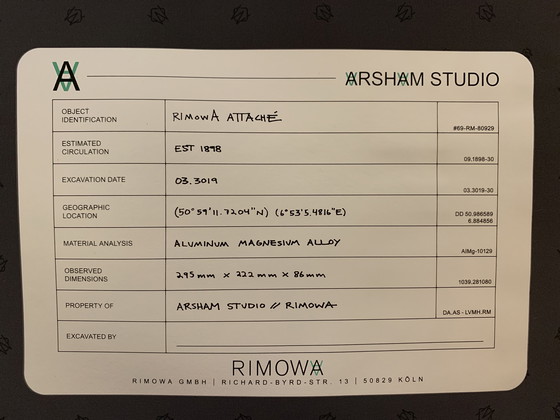 ARSHAM STUDIO
OBJECT IDENTIFICATION RIMOWA ATTACHÉ #69-RM-80929
ESTIMATED CIRCULATION EST 1898 09.1898-30
EXCAVATION DATE 03.3019 03.3019-30
GEOGRAPHIC LOCATION (50°59'11.7204"N) (6°53'5.4816"E) DD 50.986589 6.884856
MATERIAL ANALYSIS ALUMINUM MAGNESIUM ALLOY AlMg-10129
OBSERVED DIMENSIONS 295mm x 222mm x 86mm 1039.281080
PROPERTY OF ARSHAM STUDIO // RIMOWA DA.AS - LVMH.RM
EXCAVATED BY
RIMOWA
RIMOWA GMBH | RICHARD-BYRD-STR. 13 | 50829 KÖLN